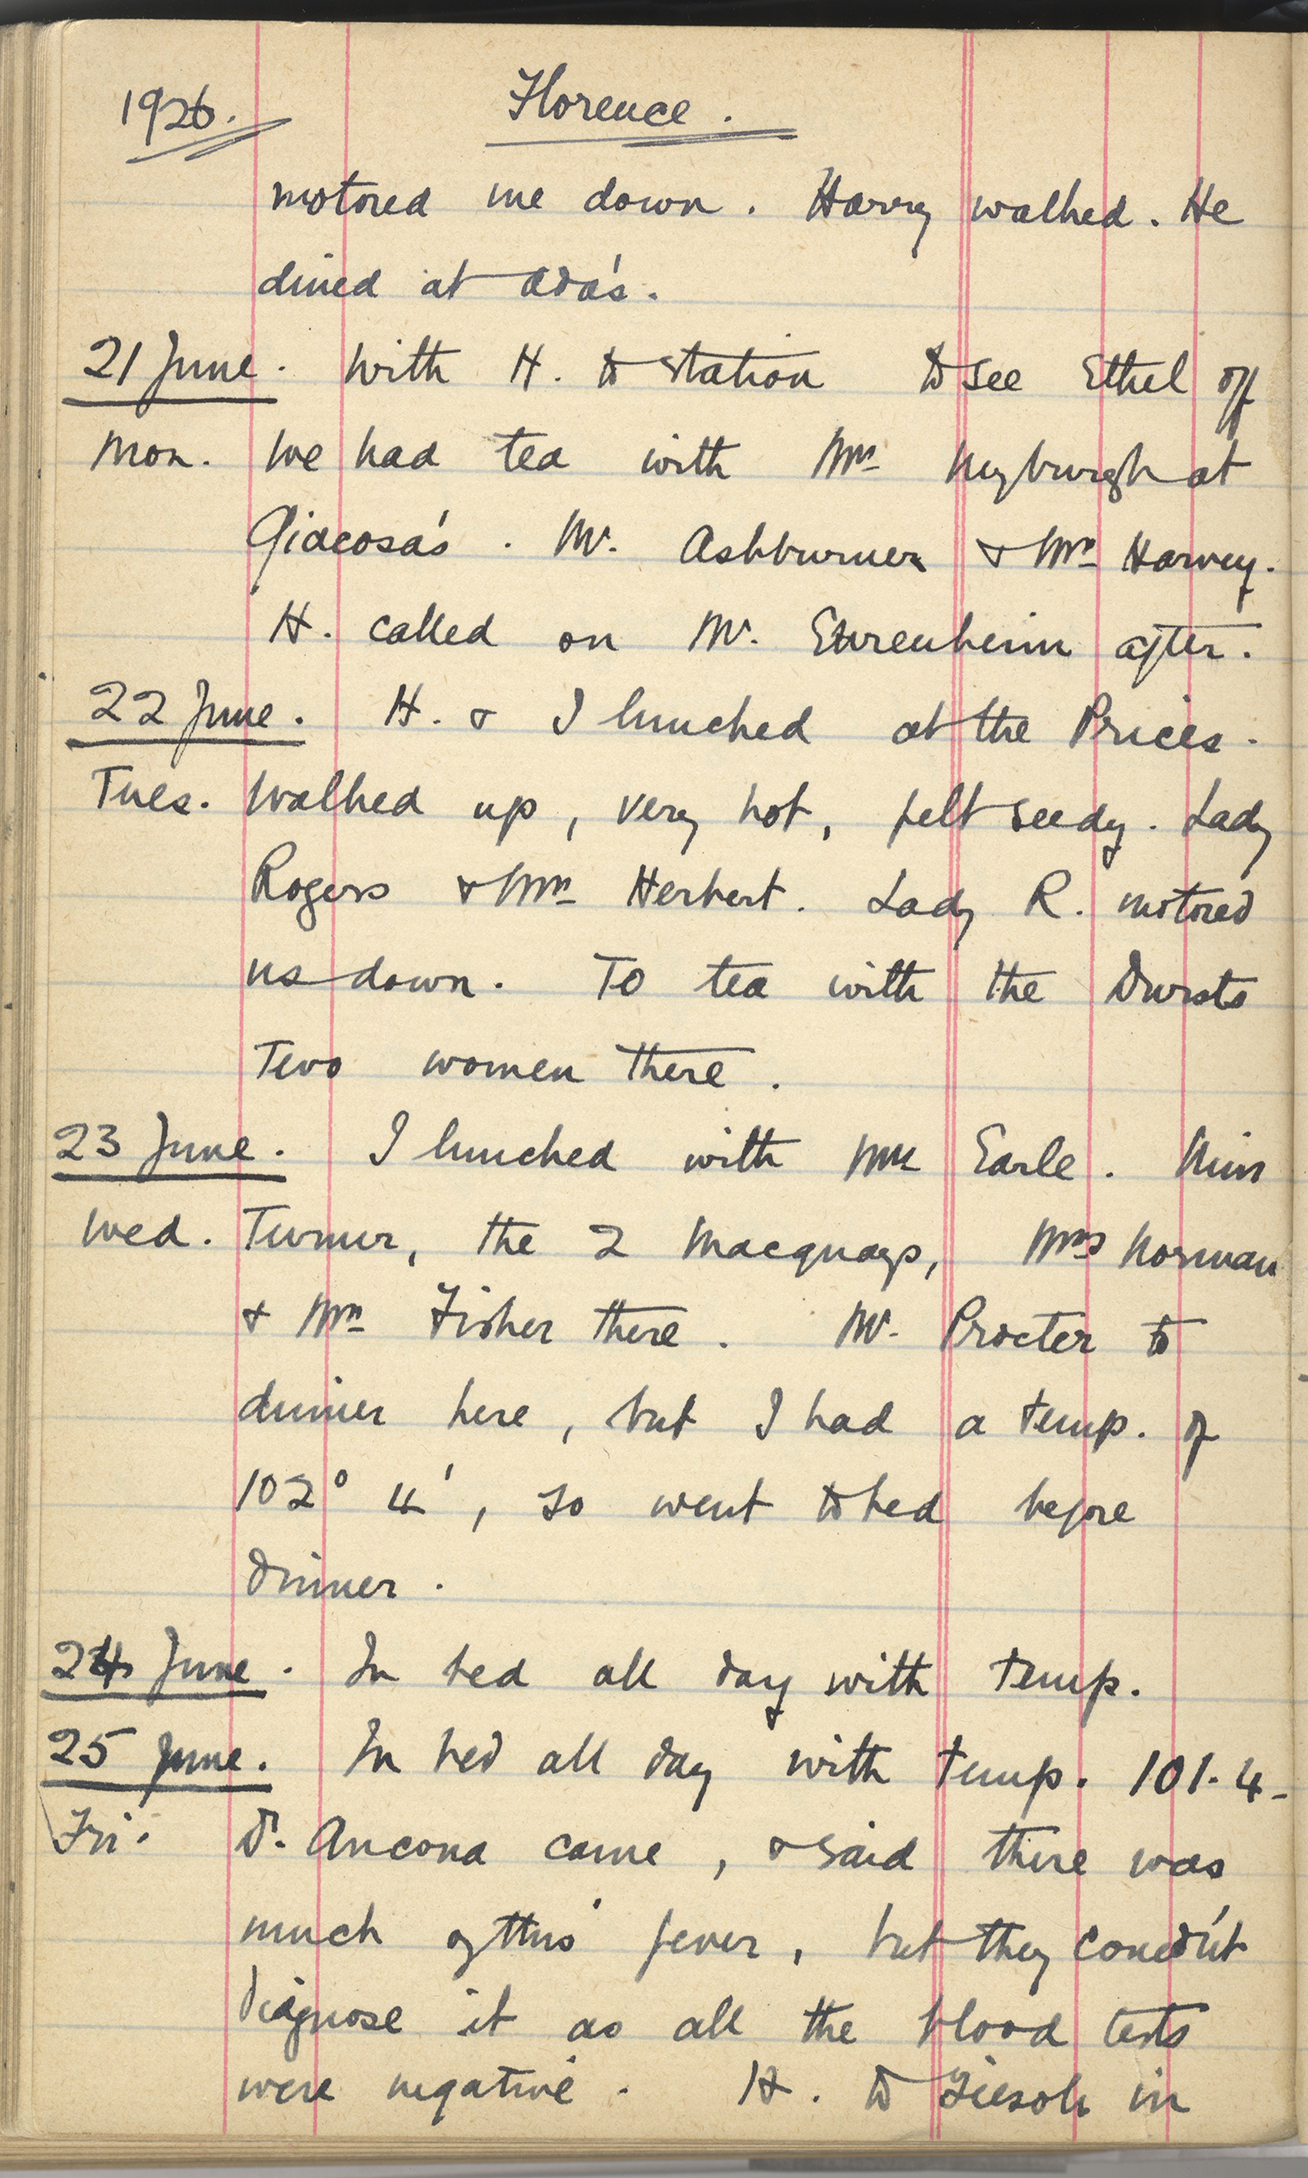 1926. Florence.
motored me down. Harry walked. He
dined at Ada's.
21 June. With H. to station to see Ethel off
Mon. We had tea with Mrs Nyburgh at
Giacosa's. Mr. Ashburner & Mrs Harvey.
H. called on Mr. Ehrenheim after.
22 June. H. & I lunched at the Prices.
Tues. Walked up, very hot, felt seedy. Lady
Rogers & Mrs Herbert. Lady R. motored
us down. To tea with the Dursts
Two women there.
23 June. I lunched with Mrs Earle. Miss
Wed. Turner, the 2 Macquays, Mrs Norman
& Mrs Fisher there. Mr. Procter to
dinner here, but I had a temp. of
102° 4', so went to bed before
dinner.
24 June. In bed all day with temp.
25 June. In bed all day with temp. 101.4-
Fri. D. Ancona came, & said there was
much of this fever, but they couldn't
diagnose it as all the blood tests
were negative. H. to Fiesole in